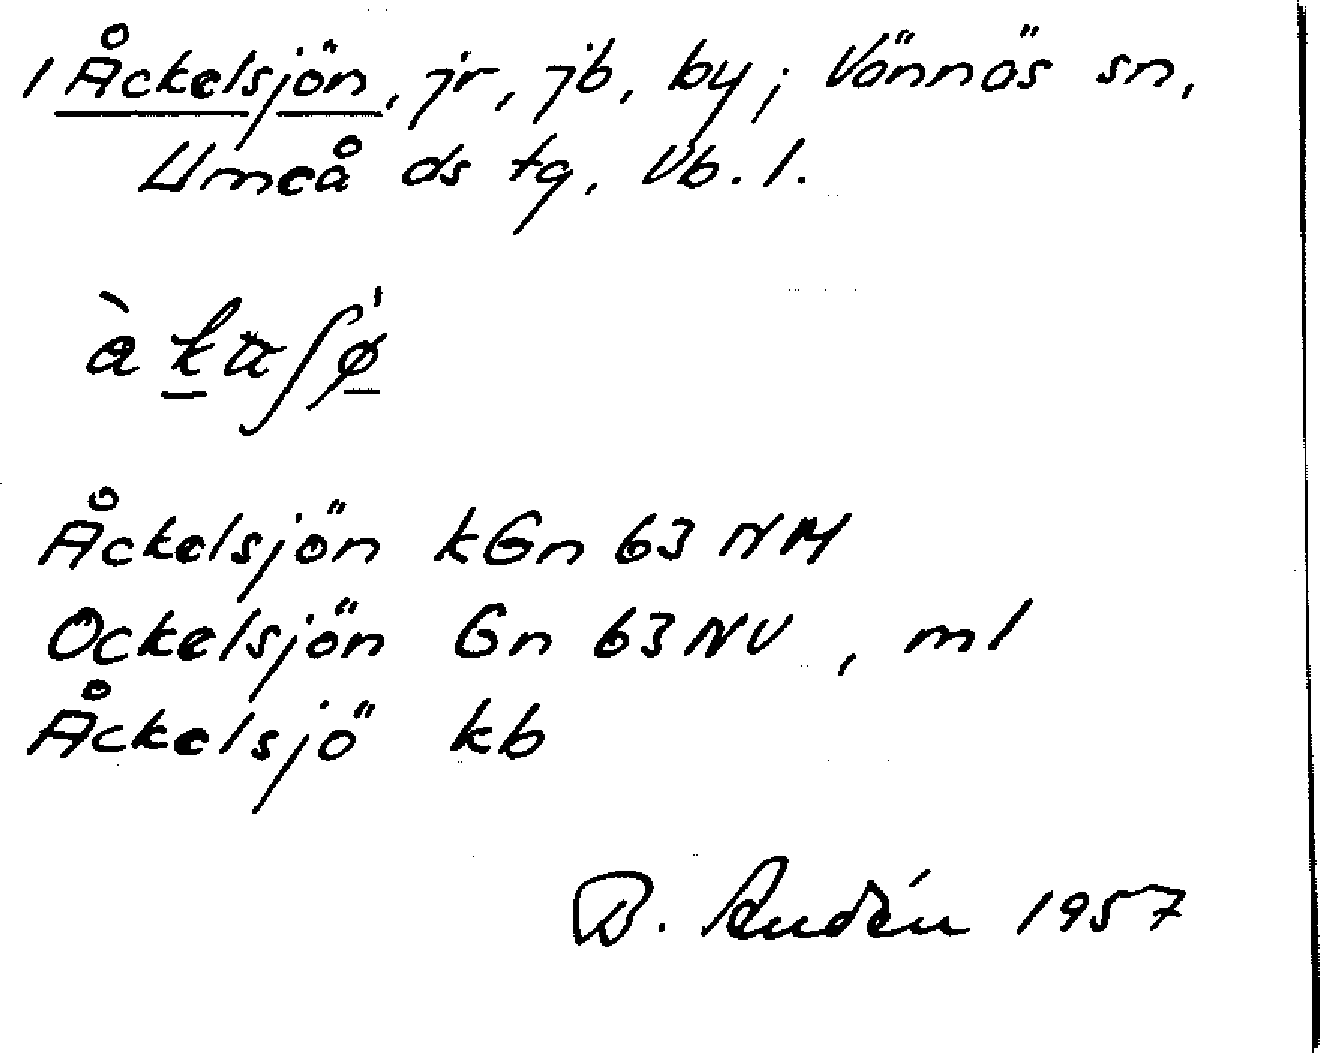 1 Åckelsjön, jr, jb, by; Vännäs sn,
Umeå ds tg, Vb. l.
Åckelsjön kGn 63 NM
Ockelsjön Gn 63 NV, ml
Åckelsjö kb
1957